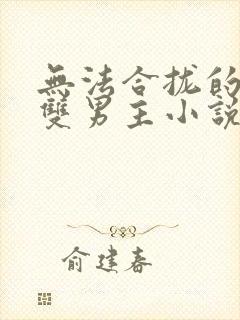 無法合拢的
雙男主小說
俞建春